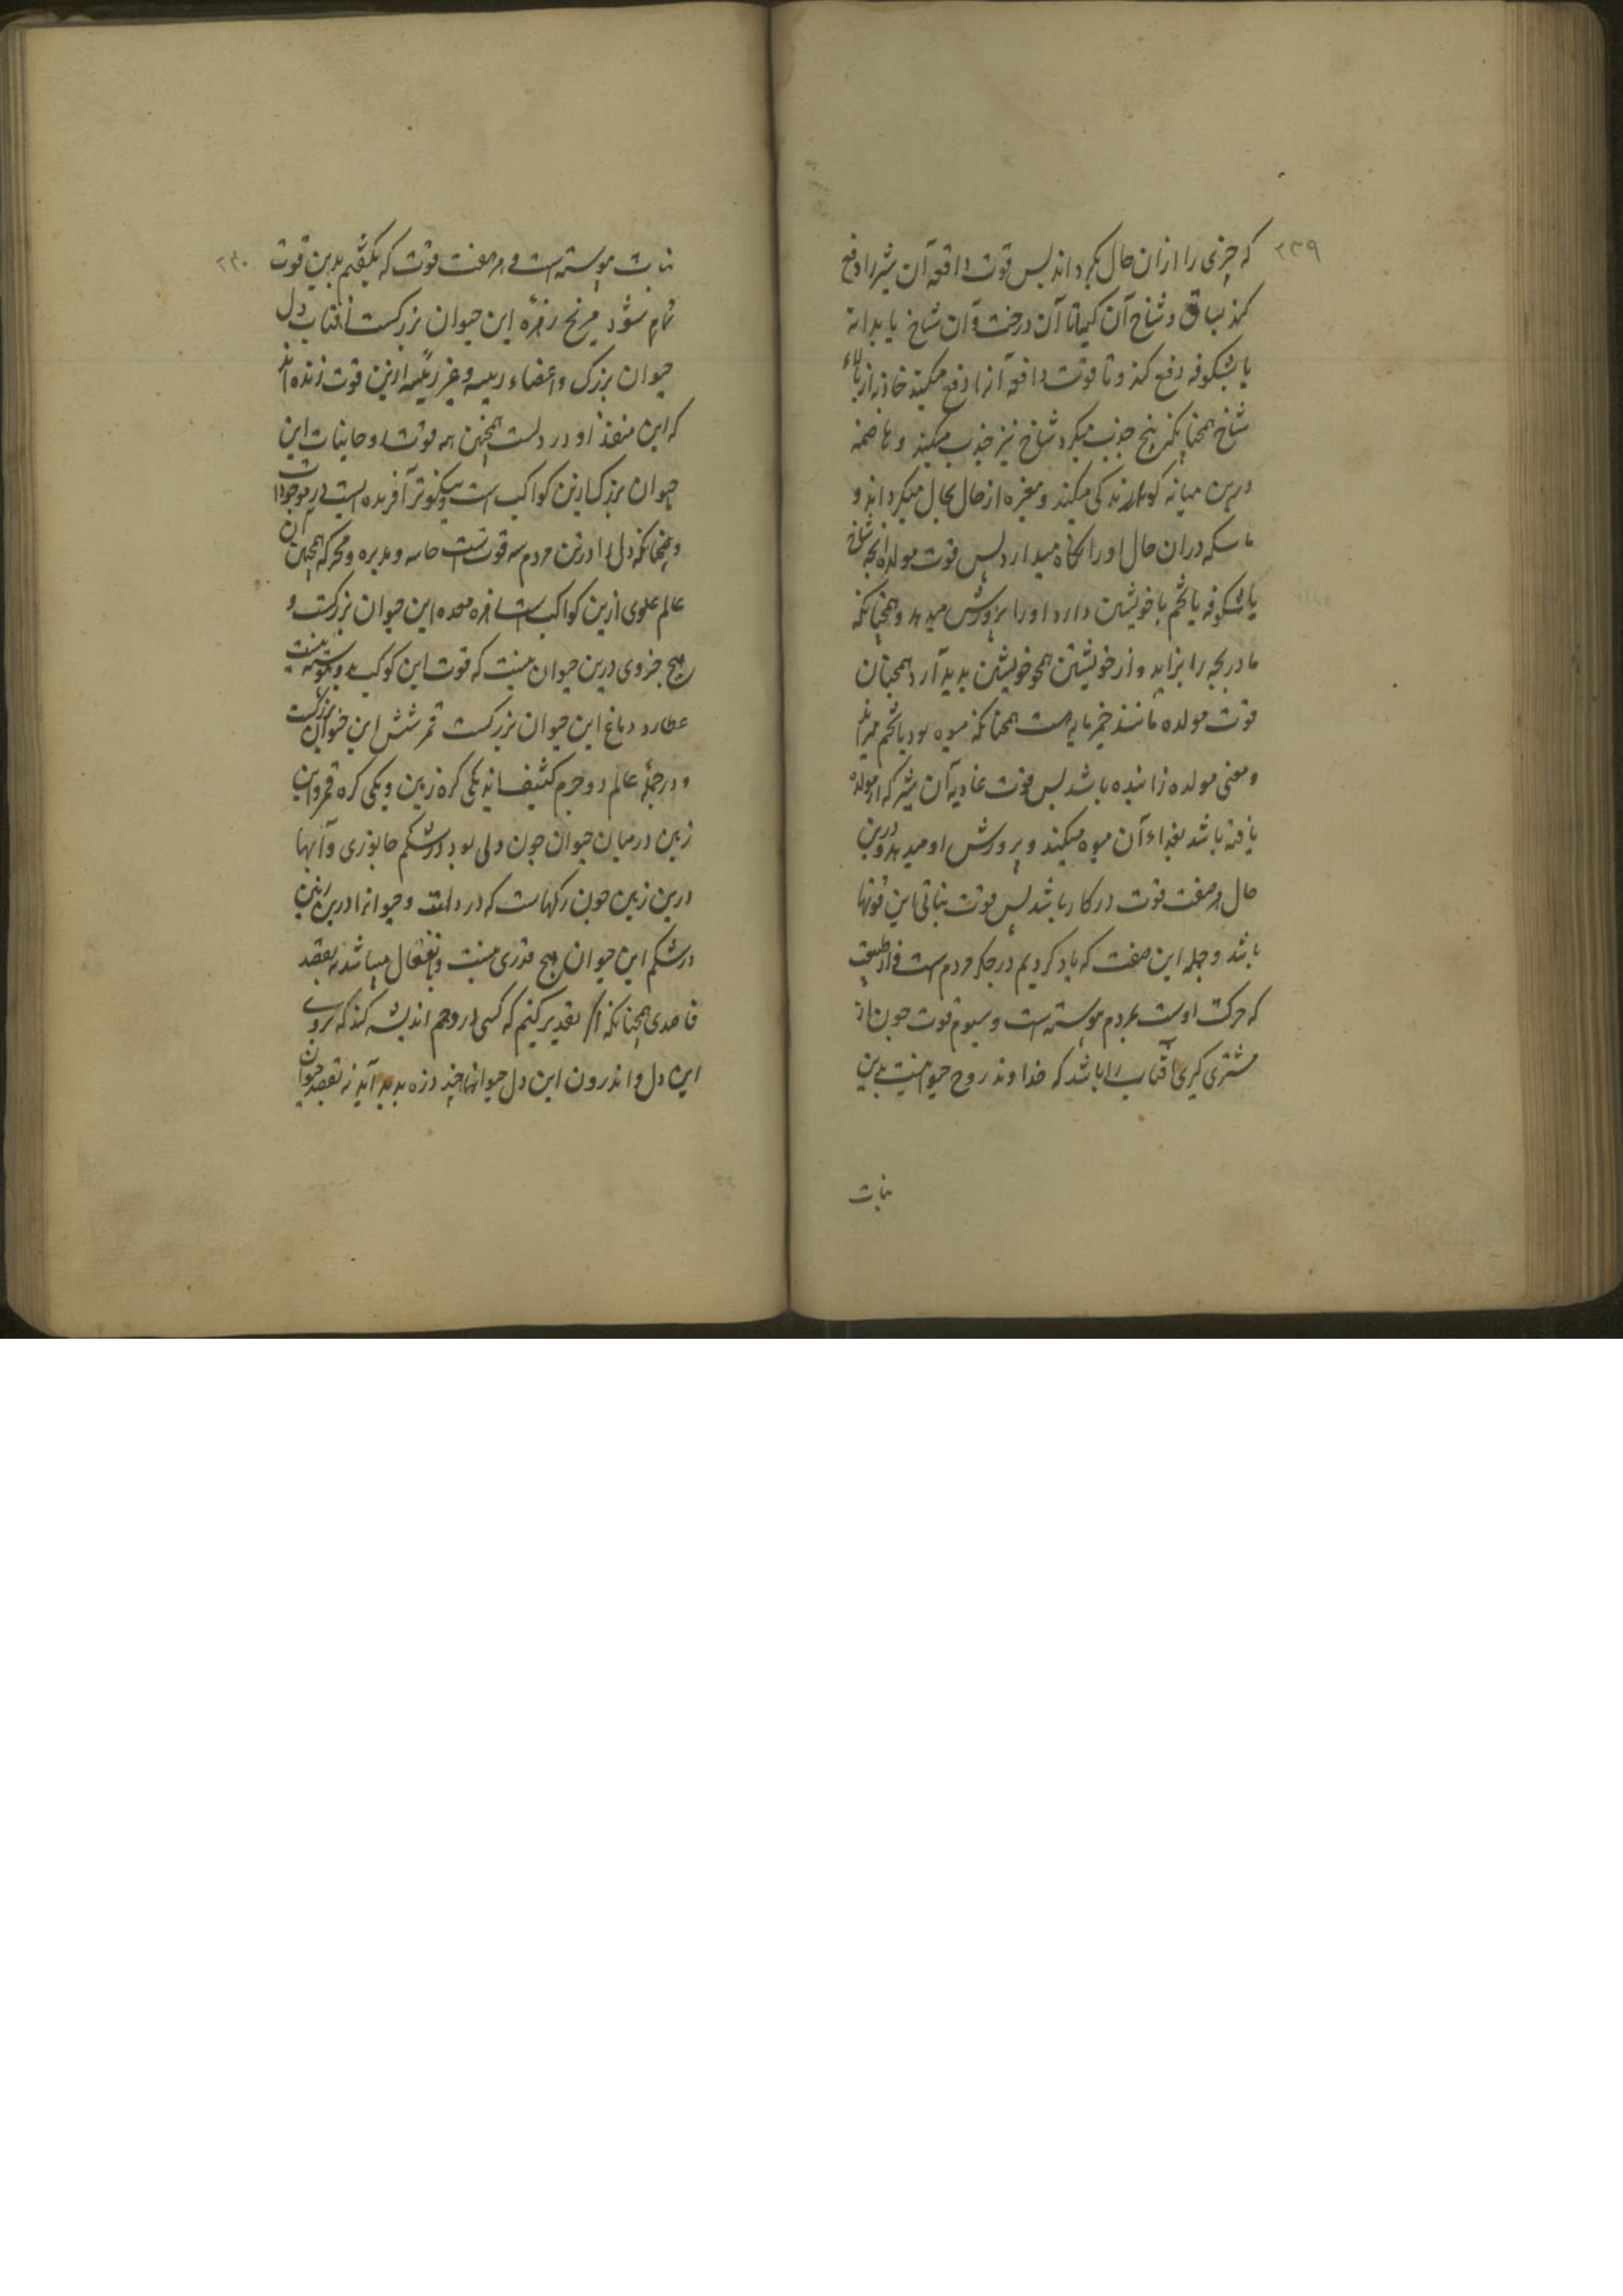 ۲۳۹
که چیزی را از ان حال بکرداند پس قوت دافعه آن شیر را دفع
کند بساق و شاخ آن کیاه تا آن درخت و ان شاخ یا بدانه
یا بشکوفه دفع کند و تا قوت دافعه آنرا دفع میکند جاذبه از بالاء
شاخ همچنانکه بیخ جذب میکرد شاخ نیز جذب میکند و هاضمه
درین میانه کوارندکی میکند و مغیره از حال بحال میکرداند و
ماسکه دران حال او را نکاه میدارد پس قوت مولده آنچه شاخ
یا شکوفه یا تخم با خویشتن دارد او را پرورش میدهد و همچنانکه
مادر بچه را بزاید و از خویشتن همچو خویشتن پدید آرد همچنان
قوت مولده مانند خمیر مایه است همچنانکه میوه بود یا تخم
و معنی مولده زاینده باشد پس قوت غاذیه آن شیر که از مولده
یافته باشد بغذاء آن میوه میکند و پرورش او میدهد و درین
حال هر هفت قوت در کار باشد پس قوت نباتی این قوتها
باشد و جمله این هفت که یاد کردیم در جکر مردم است
که حرکت اوست بمردم پیوسته است و سیوم قوت چون از
مشتری کیری آفتاب را باشد که خداوند روح حیوانیست بدین
نبات
۲۴۰
نبات پیوسته است و هر هفت قوت که بکفتیم بدین قوت
تمام شود مریخ زهره این حیوان بزرکست آفتاب دل
حیوان بزرک و اعضاء رییسه و غیر رییسه ازین قوت زنده اند
که این منفذ او در دلست همچنین همه قوتها و حاینات این
حیوان بزرک ازین کواکب است و نیکوتر آفریده ایست در موجودات
و چنانکه دل را در تن مردم سه قوتست حاسه و مدبره و محرکه همچنین آن
عالم علوی ازین کواکب است زهره معده این حیوان بزرکست و
هیچ جزوی درین حیوان نیست که قوت این کوکب بدو پیوسته نیست
عطارد دماغ این حیوان بزرکست قمر شش این حیوان بزرکست
و در جمله عالم دو جرم کثیف اند یکی کره زمین و یکی کره قمر و این
زمین در میان حیوان چون دلی بود در شکم جانوری و آبها
درین زمین چون رکهاست که در دلست و حیوانرا درین زمین
در شکم این حیوان هیچ قدری نیست و بانفعال میباشد نه بقصد
قاصدی همچنانکه اکر تقدیر کنیم که کسی را در وهم اندیشه کند که بروی
این دل و اندرون این دل حیوانها چند ذره پدید آید نه بقصد حیوان